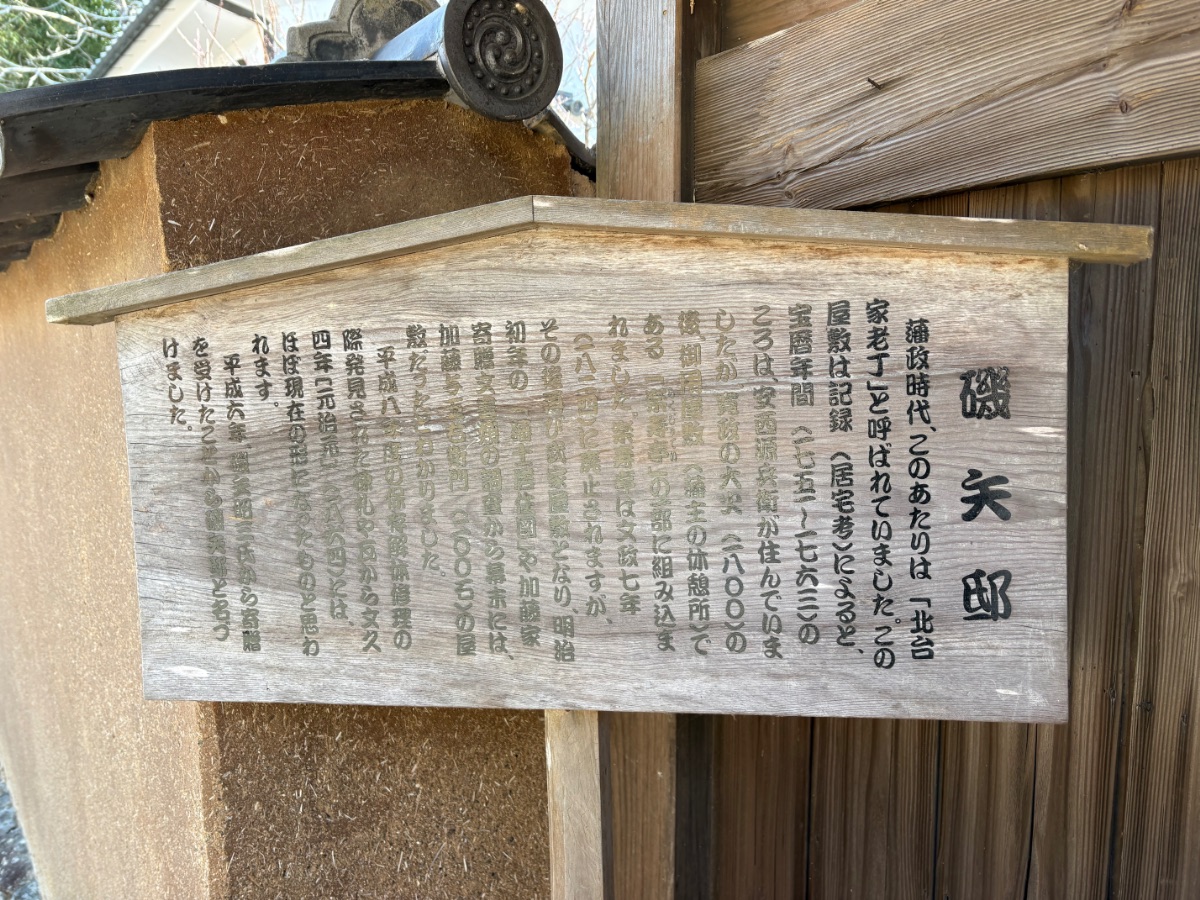 磯矢邸
藩政時代、このあたりは「北台
家老丁」と呼ばれていました。この
屋敷は記録（居宅考）によると、
宝暦年間（一七五一〜一七六三）の
ころは、安西源兵衛が住んでいま
したが、寛政の大火（一八〇〇）の
後、御用屋敷（藩主の休憩所）で
ある「楽寿亭」の一部に組み込ま
れました。楽寿亭は文政七年
（一八二四）に廃止されますが、
その後再び武家屋敷となり、明治
初年の「市街住図」や加藤家
寄贈文書の図面から幕末には、
加藤与五右衛門（二〇〇石）の屋
敷だったとわかりました。
平成八年度の保存解体修理の
際発見された棟札や瓦から文久
四年〔元治元〕（一八六四）には、
ほぼ現在の形になったものと思わ
れます。
平成六年
氏から寄贈
を受けたことから磯矢邸と名づ
けました。